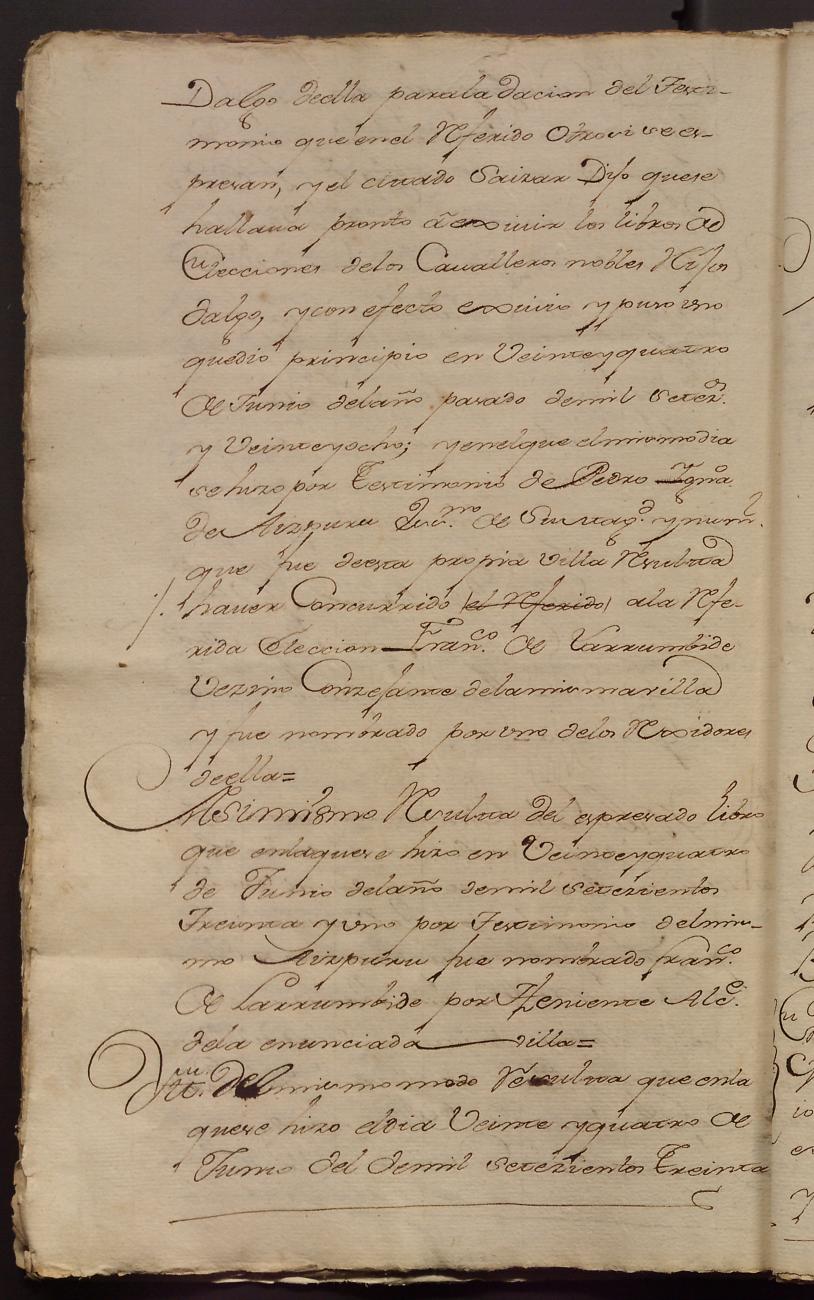 Dalgo deella parala dacion del Testi-
monio que enel Rferido Otrosi sees-
presan, y el citado Saizar Dijo quese
hallava pronto á exivir los libros de
Elecciones delos Cavalleros nobles Hijos
dalgo, y con efecto exivio y puso uno
quedio principio en Veinte y quatro
de Junio delaño pasado demil setez.s
y Veinte y ocho; y enelque el mismo dia
se hizo por Testimonio de Pedro Igna.º
de Aizpuru Ess.no de Su Mag.d y num.l
que fue deesta propria villa Rsulta
haver Concurrido (el Rferido) ala Rfe-
rida Eleccion Fran.co de Larrumbide
Vezino Conzejante delamisma villa
y fue nombrado por uno delos Rexidores
deella=
Assimismo Rsulta del espresado libro
que enlaquese hizo en Veinte y quatro
de Junio delaño demil setezientos
Treinta y uno por Testimonio delmis-
mo Aizpuru fue nombrado fran.co
de Larrumbide por Theniente Alc.e
dela enunciada villa=
Del mismo modo Resulta que enla
quese hizo eldia Veinte y quatro de
Junio del demil setezientos Treinta